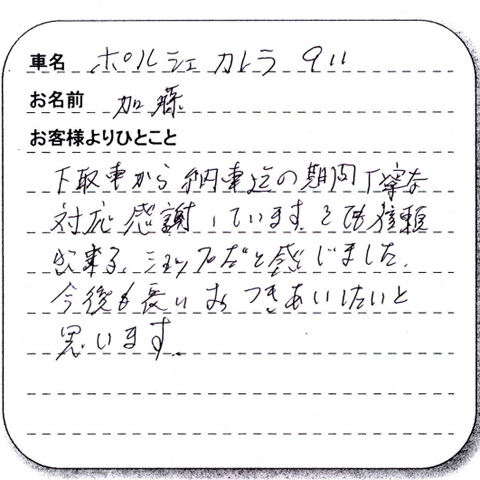 車名 ポルシェ カレラ 911
お名前 加藤
お客様よりひとこと
下取車から納車迄の期間丁寧な
対応感謝しています。とても信頼
出来る、ショップだと感じました。
今後も長いおつきあいしたいと
思います。